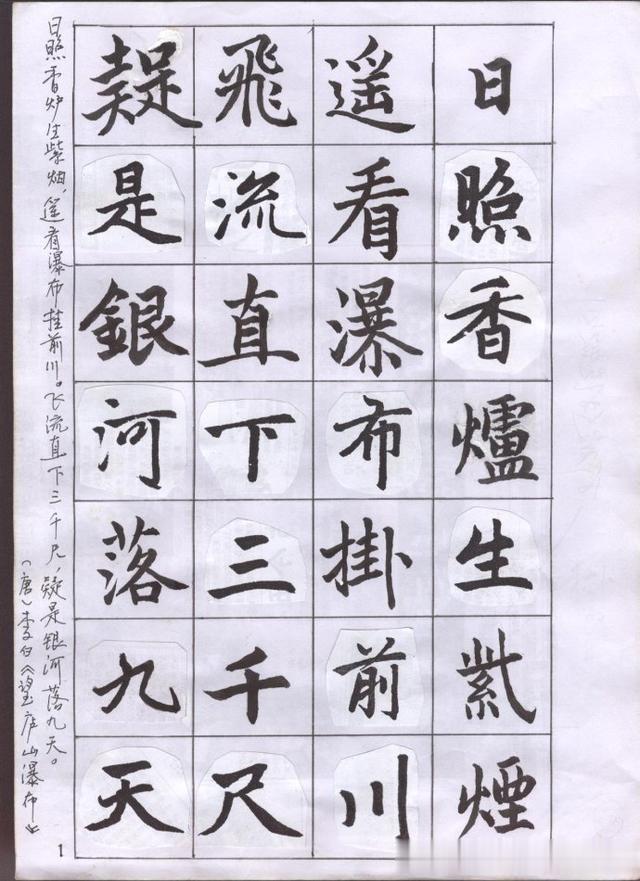 日照香爐生紫煙
遥看瀑布掛前川
飛流直下三千尺
疑是銀河落九天
日照香炉生紫烟，遥看瀑布挂前川。飞流直下三千尺，疑是银河落九天。
（唐）李白《望庐山瀑布》
1